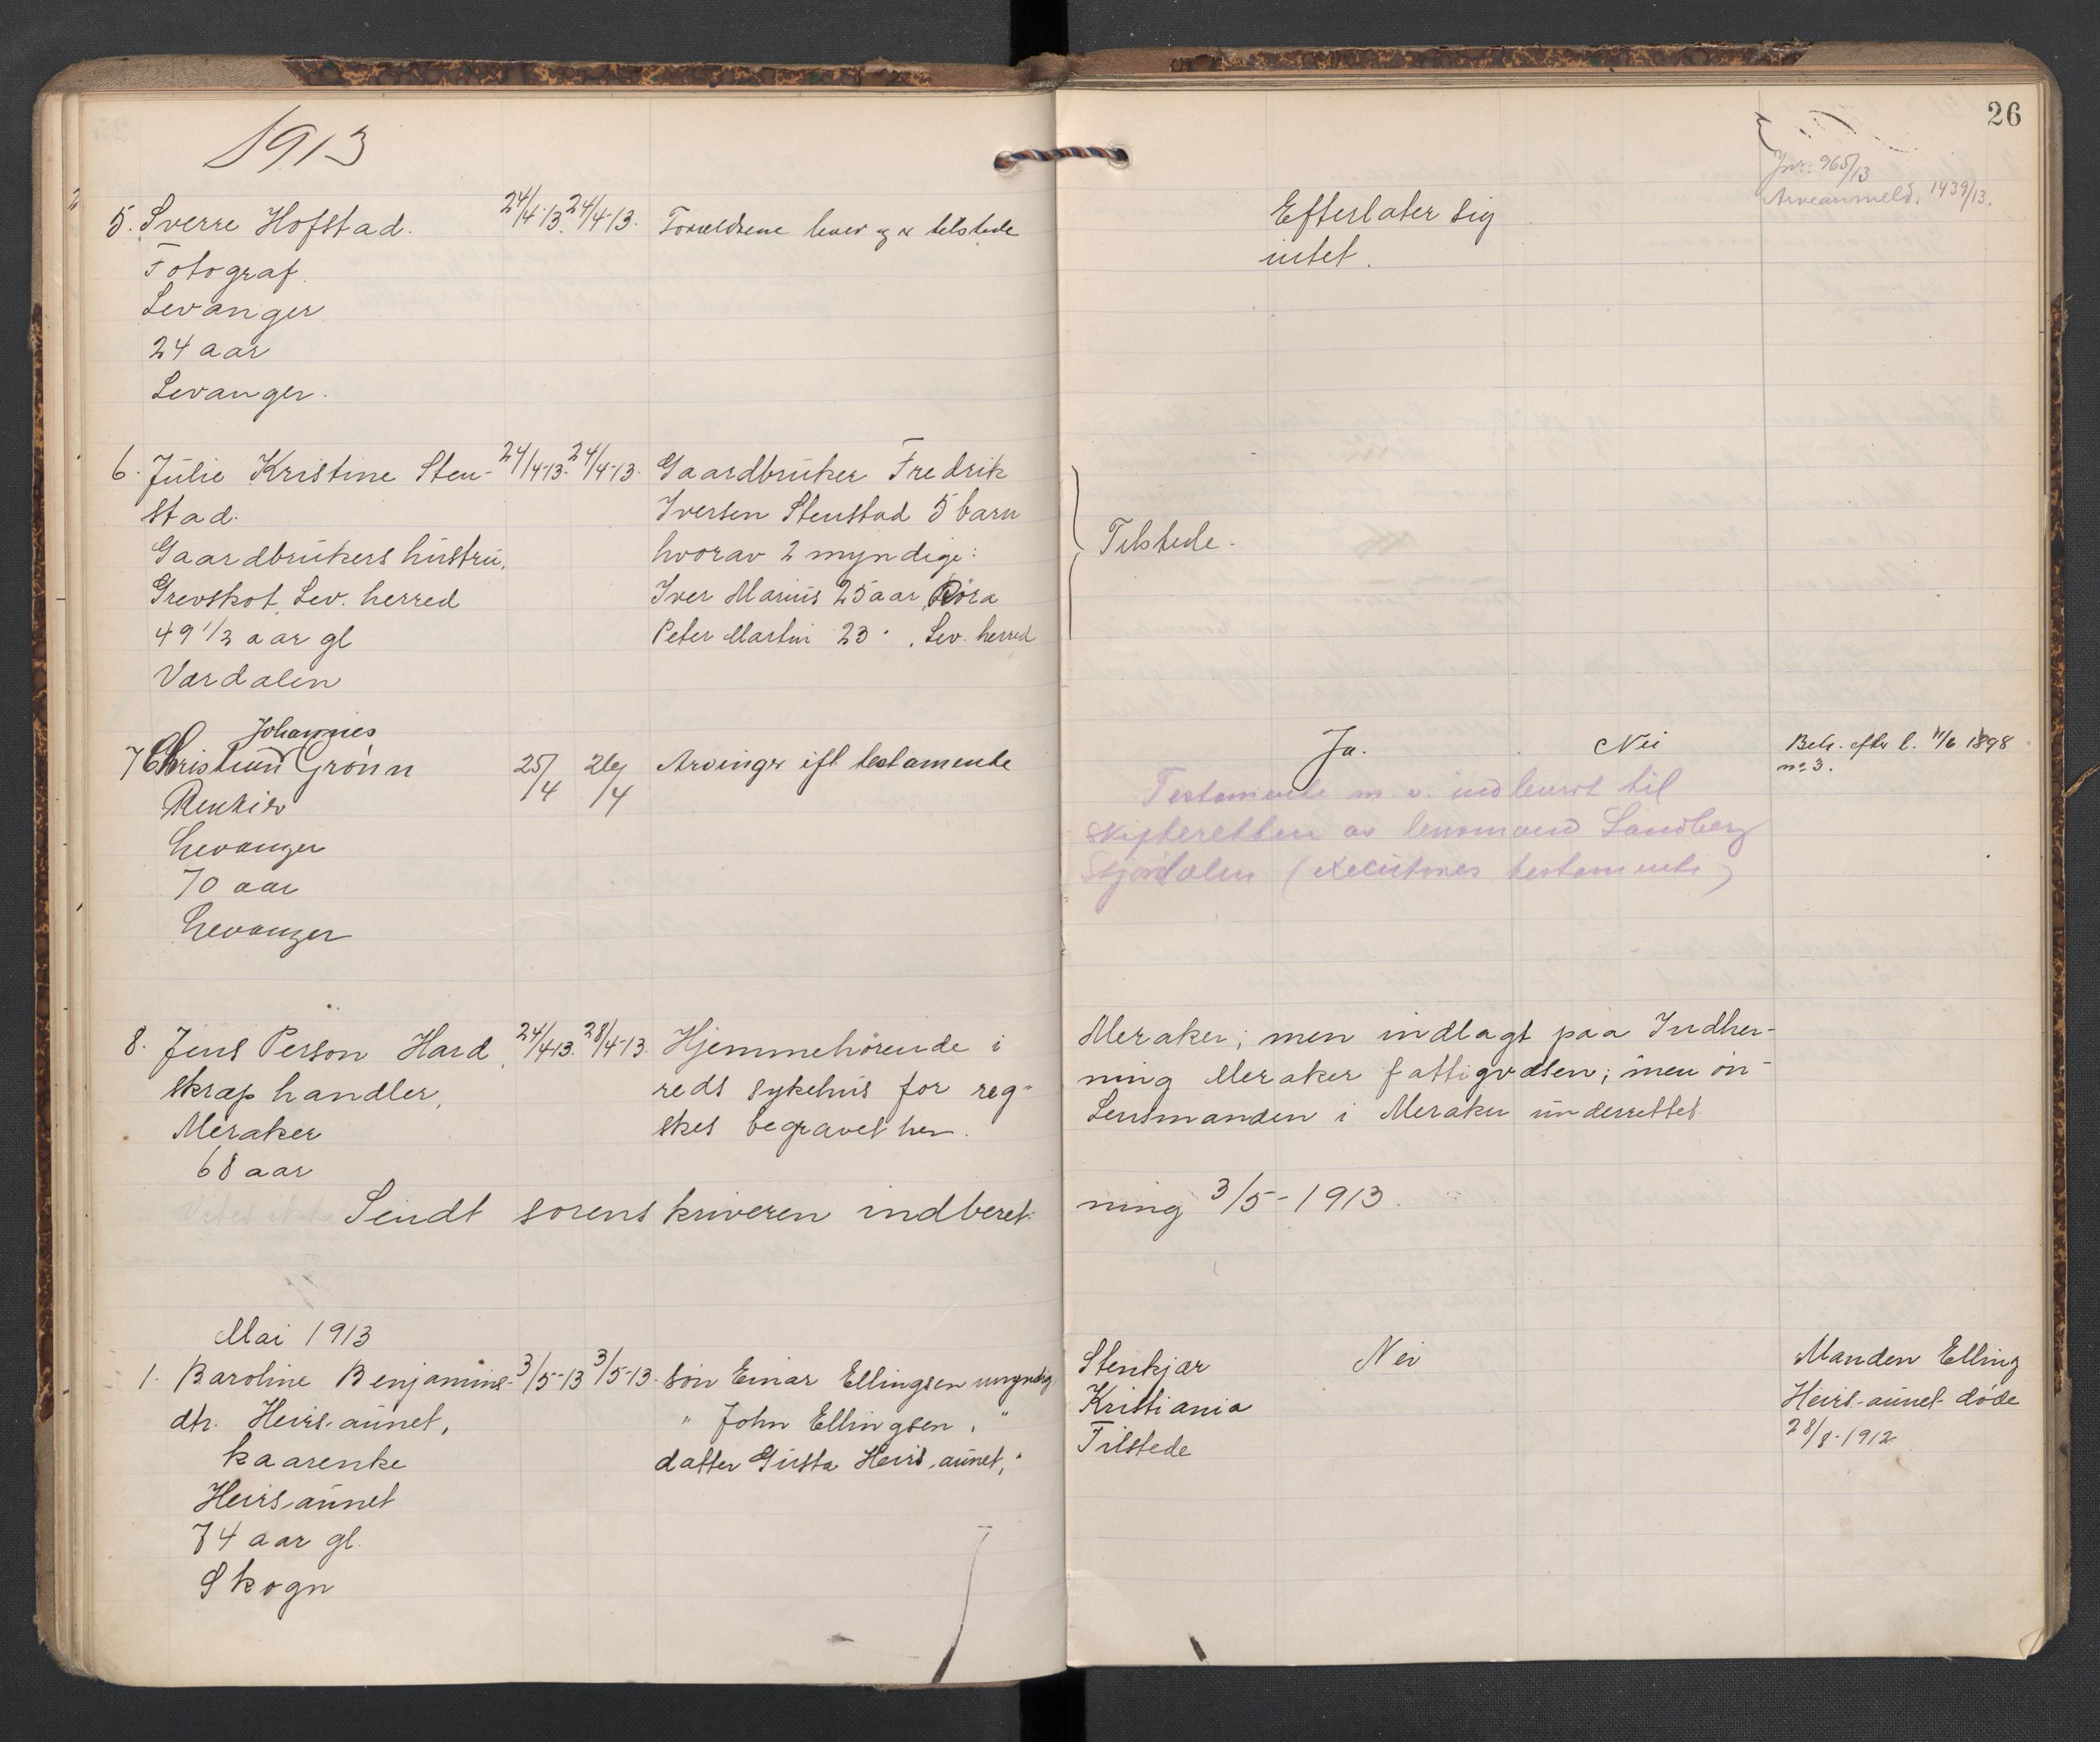 26
1913
Jnr: 965/13
Arveanmeld. 1439/13.
5. Sverre Hofstad. 24/4-13. 24/4-13. Forældrene lever og er tilstede Efterlater sig
Fotograf. intet.
Levanger
24 aar
Levanger.
6. Julie Kristine Sten- 24/4-13. 24/4-13. Gaardbruker Fredrik
stad. Iversen Stenstad 5 barn
Gaardbrukers hustru, hvorav 2 myndige: Tilstede.
Grevskot, Lev. herred Iver Marius 25 aar, Røra
49 1/2 aar gl Peter Martin 23 " , Lev. herred
Værdalen
Johannes
7 Christian Grønn 25/4 26/4 Arvinger ifl testamente Ja. Nei Beh. efter l. 11/6 1898
no 3.
Rentier Testamente m. v. indleveret til
Levanger skifteretten av lensmand Sandberg
70 aar Stjørdalen (executores testamenti)
Levanger
8. Jens Person Hard, 24/4-13. 28/4-13. Hjemmehørende i Meraker; men indlagt paa Indher-
skraphandler, reds sykehus for reg- ning Meraker fattigvæsen; men øn-
Meraker skes begravet her. Lensmanden i Meraker underrettet
68 aar
Sendt sorenskriveren indberet- ning 3/5-1913.
Mai 1913
1. Baroline Benjamins- 3/5-13 3/5-13. søn Einar Ellingsen myndig Stenkjær Nei Manden Elling
dtr. Heirs-aunet, " John Ellingsen, " Kristiania Heirs-aunet døde
kaarenke datter Gusta Heirs-aunet, " Tilstede 28/8-1912
Heirsaunet
74 aar gl.
Skogn